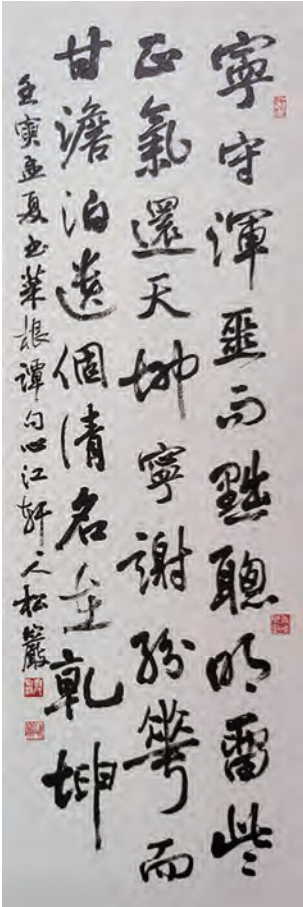 寧守渾噩而黜聰明留些
正氣還天地寧謝紛華而
甘澹泊遺個清名在乾坤
壬寅孟夏书菜根譚句心江軒人松巖